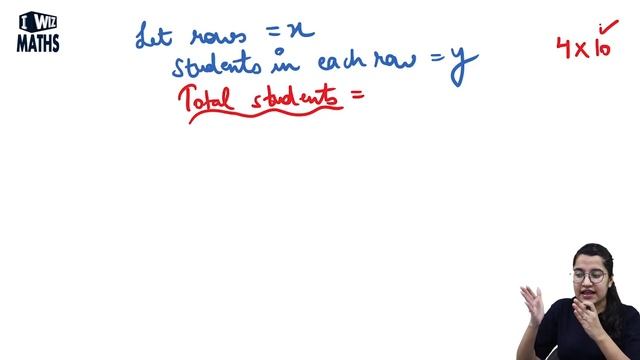 I WIZ
MATHS
Let rows = x
Students in each row = y
Total students =
4 x 10